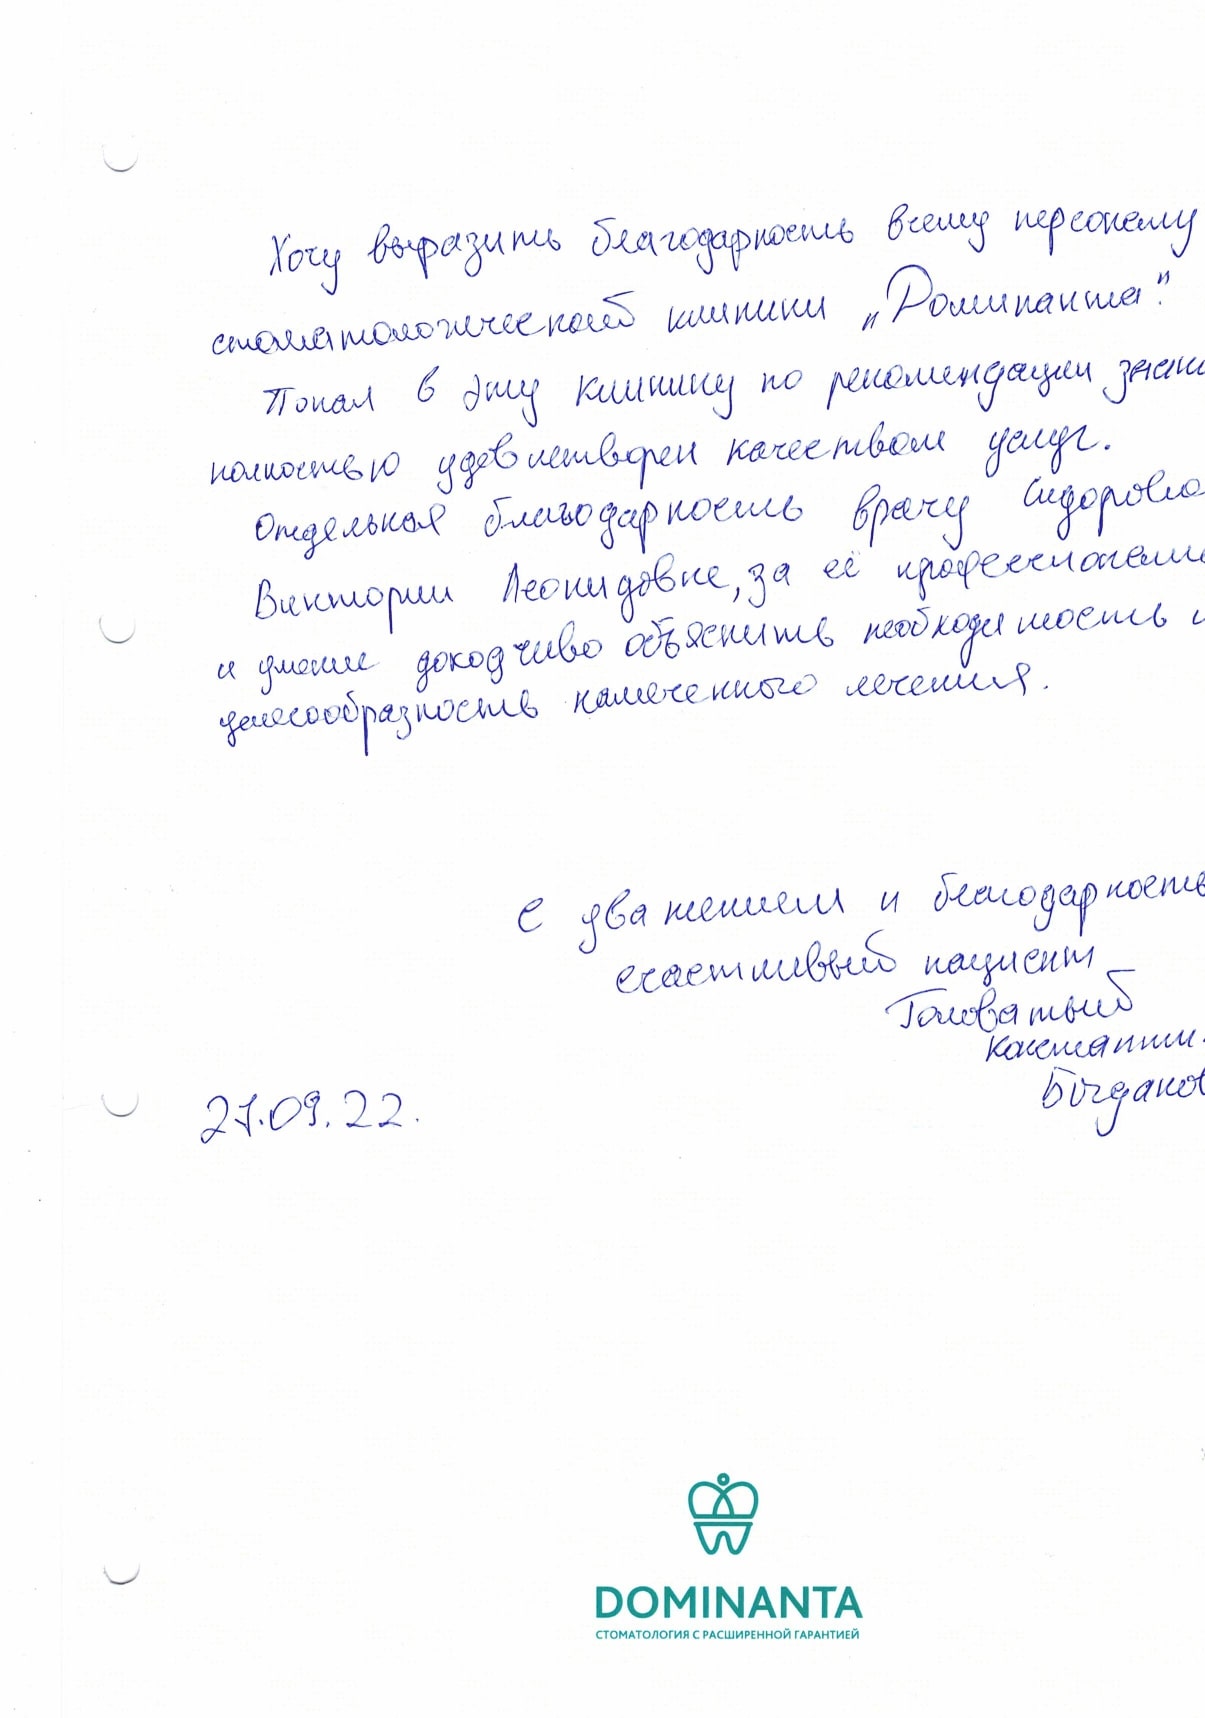 Хочу выразить благодарность всему персоналу
стоматологической клиники „Доминанта".
Попал в эту клинику по рекомендации знак
полностью удовлетворен качеством услуг.
Отдельная благодарность врачу Сидорово
Виктории Леонидовне, за её профессионали
и умение доходчиво объяснить необходимость и
целесообразность намеченного лечения.
С уважением и благодарность
счастливый пациент
Головатый
Константин
Богданов
27.09.22.
DOMINANTA
СТОМАТОЛОГИЯ С РАСШИРЕННОЙ ГАРАНТИЕЙ